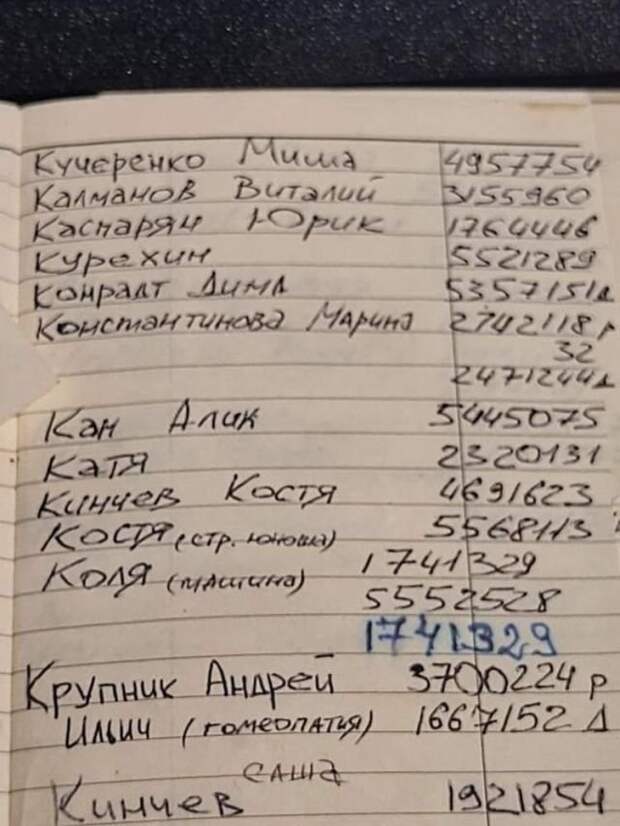 Кучеренко Миша 4957754
Калманов Виталий 3155960
Каспарян Юрик 1764446
Курехин 5521289
Конрадт Дима 5357151д
Константинова Марина 2742118р
32
2471244д
Кан Алик 5445075
Катя 2320131
Кинчев Костя 4691623
Костя (стр. юноша) 5568113
Коля (машина) 1741329
5552528
1741329
Крупник Андрей 3700224 р
Ильич (гомеопатия) 1667152 д
саша
Кинчев 1921854